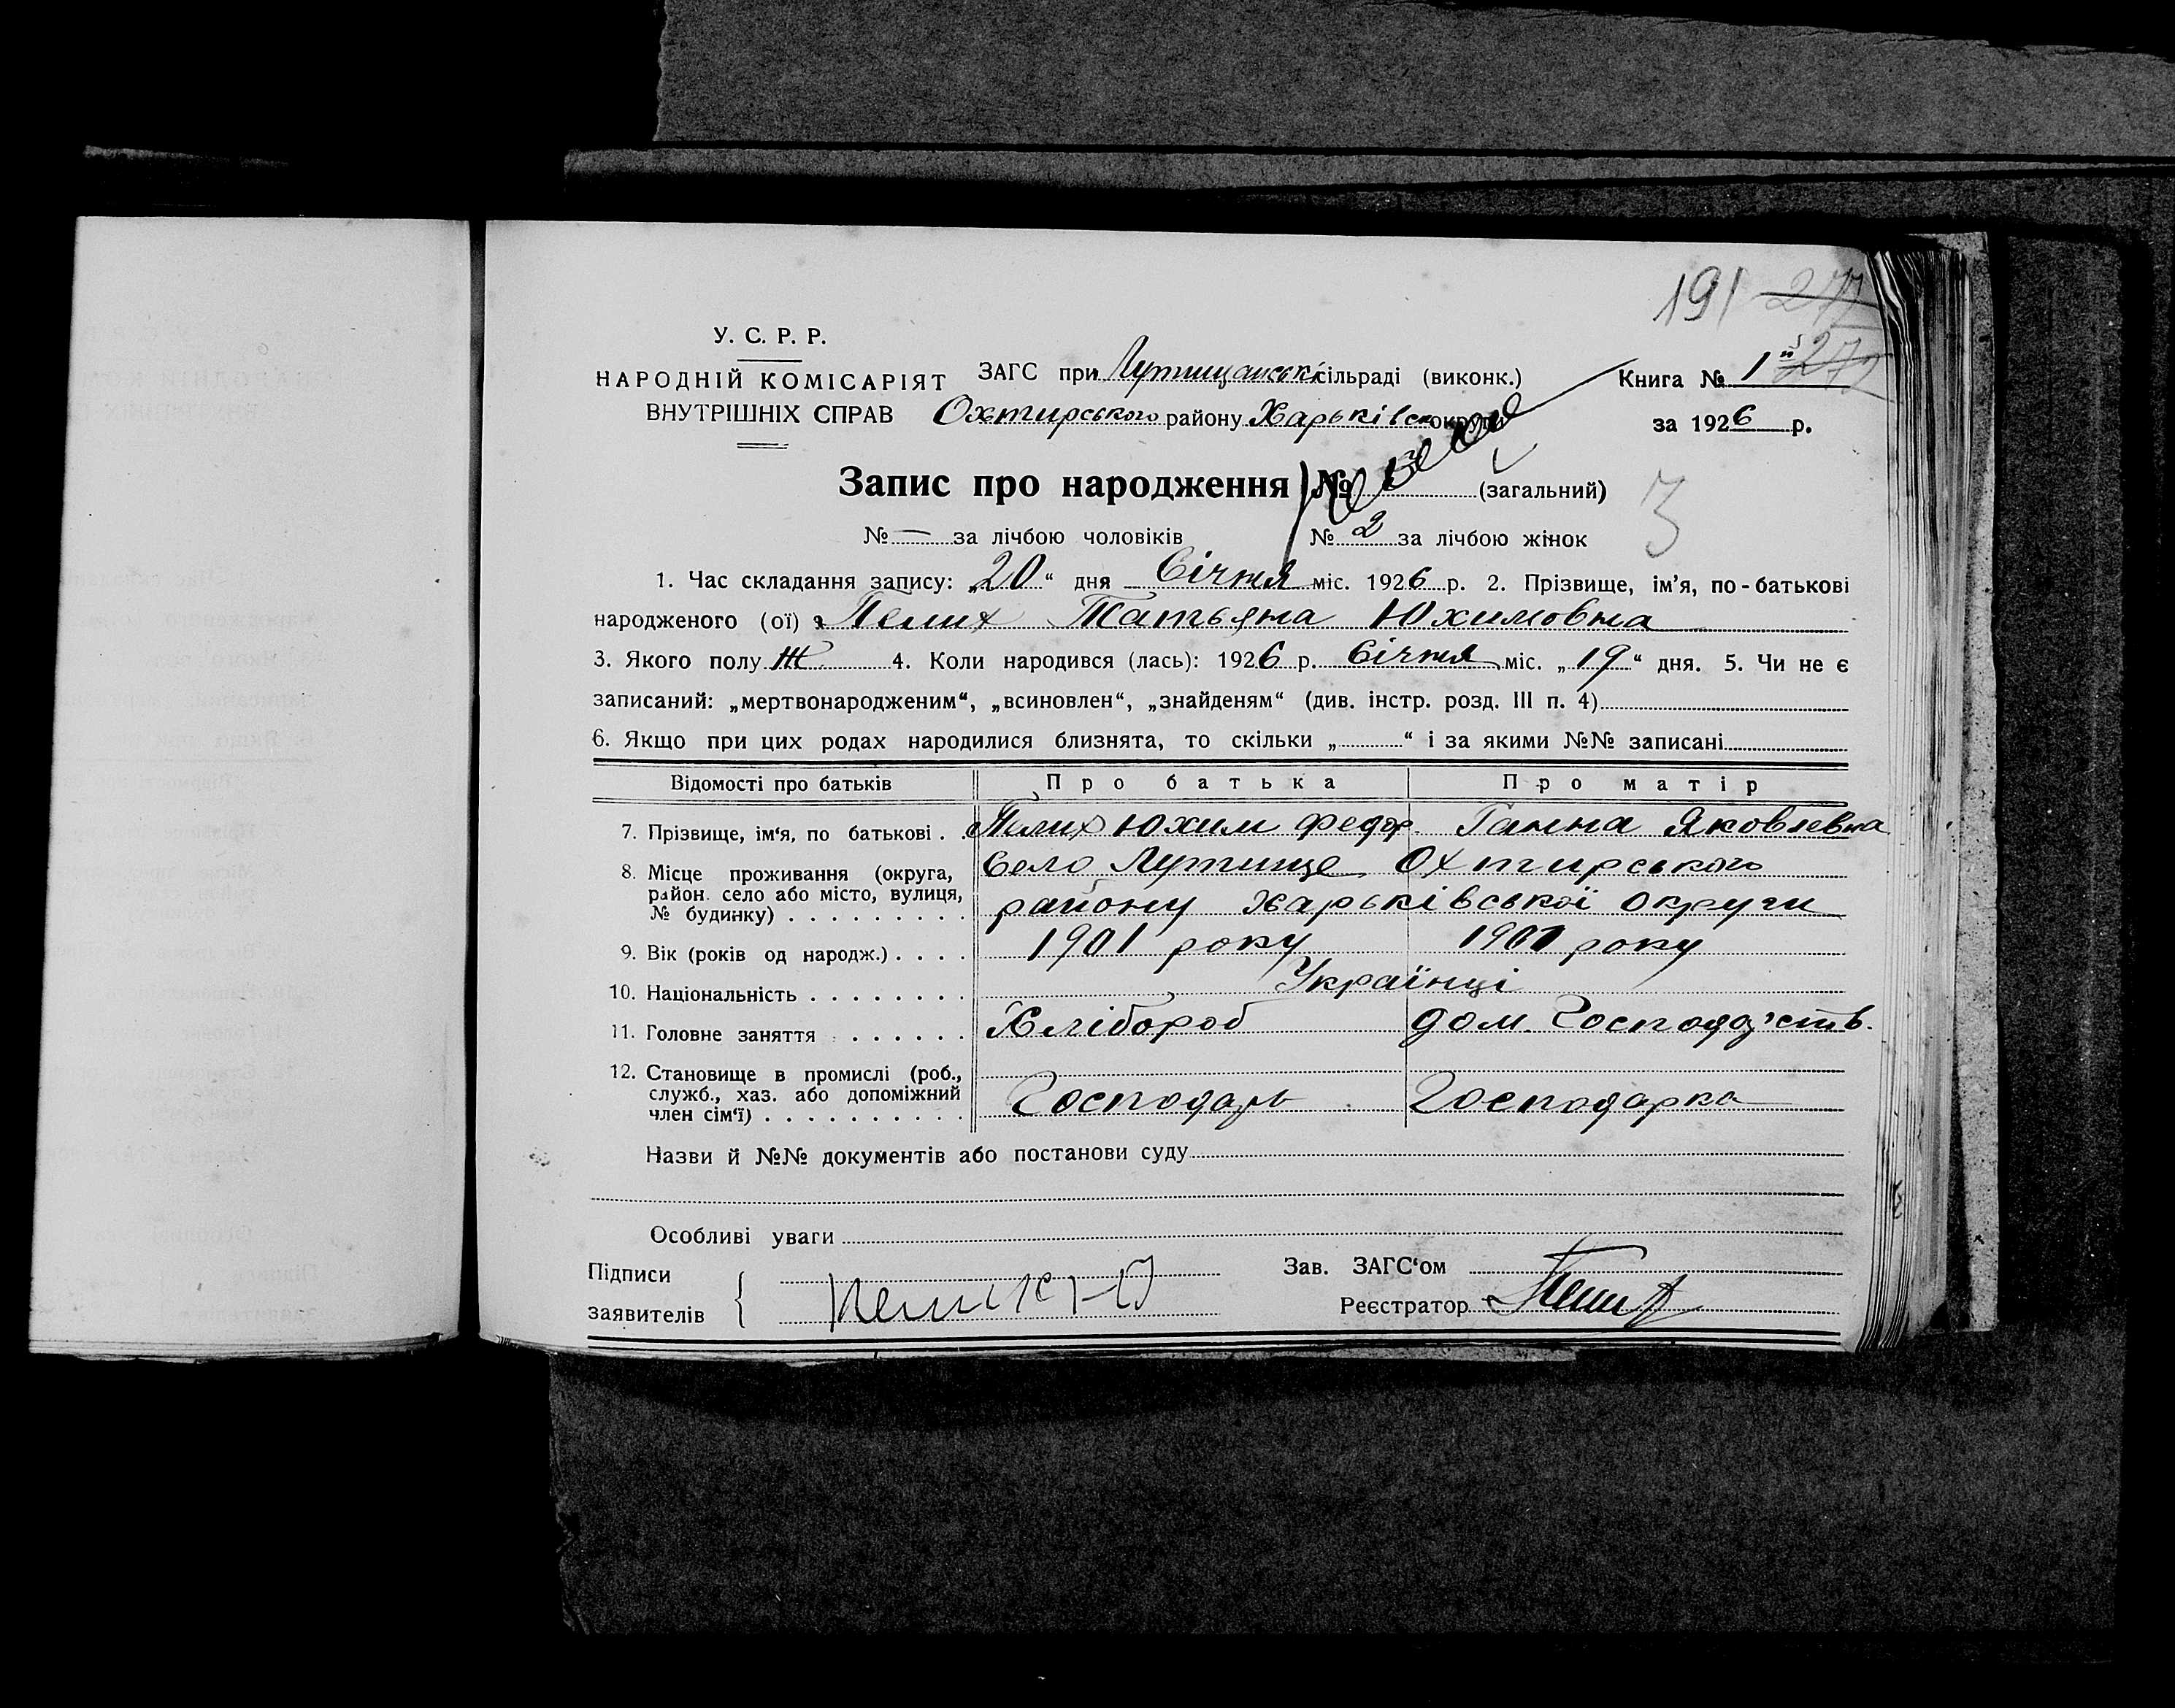 191 277
У. С. Р. Р.
НАРОДНІЙ КОМІСАРІЯТ
ВНУТРІШНІХ СПРАВ
ЗАГС при Лутищанські сільраді (виконк.)
Охтирського району Харьківськ округи
Книга № 1й 279
за 1926 р.
Запис про народження № (загальний) 3
№ — за лічбою чоловіків № 2 за лічбою жінок
1. Час складання запису: „20“ дня Січня міс. 1926 р. 2. Прізвище, ім’я, по-батькові
народженого (ої) Пелих Татьяна Юхимовна
3. Якого полу Ж. 4. Коли народився (лась): 1926 р. Січня міс. „19“ дня. 5. Чи не є
записаний: „мертвонародженим“, „всиновлен“, „знайденям“ (див. інстр. розд. III п. 4)
6. Якщо при цих родах народилися близнята, то скільки „ “ і за якими №№ записані
Відомості про батьків Про батька Про матір
7. Прізвище, ім‘я, по батькові . . Пелих Юхим Федор. Ганна Яковлевна
8. Місце проживання (округа, Село Лутище Охтирського
район. село або місто, вулиця,
№ будинку) . . . . . . . . . району Харьківської округи
9. Вік (років од народж.) . . . . 1901 року 1901 року
10. Національність . . . . . . . . Українці
11. Головне заняття . . . . . . Хлібороб дом. Господар'ств.
12. Становище в промислі (роб.,
служб., хаз. або допоміжний
член сім‘ї) . . . . . . . . . . Господарь Господарка
Назви й №№ документів або постанови суду
Особливі уваги
Підписи
заявителів { Пелих Ю
Зав. ЗАГС‘ом
Реєстратор Пелих